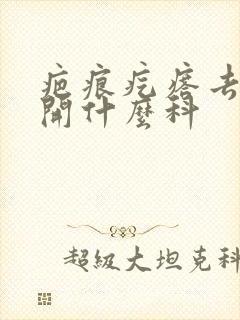 疤痕疙瘩去
開什麼科
超級大坦克科